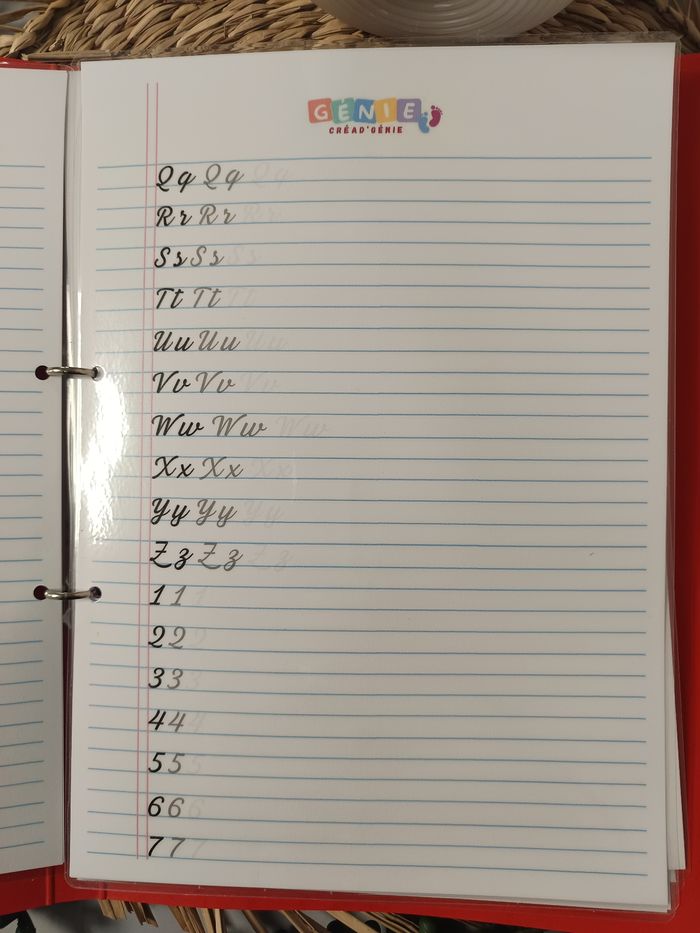 GÉNIE
CRÉAD'GÉNIE
Qq Qq Qq
Rr Rr Rr
Ss Ss Ss
Tt Tt Tt
Uu Uu Uu
Vv Vv Vv
Ww Ww Ww
Xx Xx Xx
Yy Yy Yy
Zz Zz Zz
1 1 1
2 2 2
3 3 3
4 4 4
5 5 5
6 6 6
7 7 7